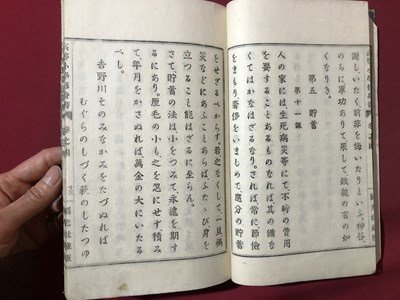 謝しいたく、前非を悔いたりといふ。神谷、
のちに軍功ありて果して政親の言の如
くなりき。
第五　貯蓄
第十一課
人の家には生死病災等にて、不時の費用
を要することあるものなれば其の備な
くてはかなはざるなり。されば常に節儉
をまもり奢侈をいましめて應分の貯蓄
をせざるべからず。若之なくして一旦禍
災などにあふことあらばふたゝび身を
立つること能はざるに至らん。
さて貯蓄の法は小をつみて永遠を期す
るにあり。厘毛の小も之を忍にせず積み
て年月をかさぬれば萬金の大にいたる
べし。
吉野川そのみなかみをたづぬれば
むぐらのしづく萩のしたつゆ